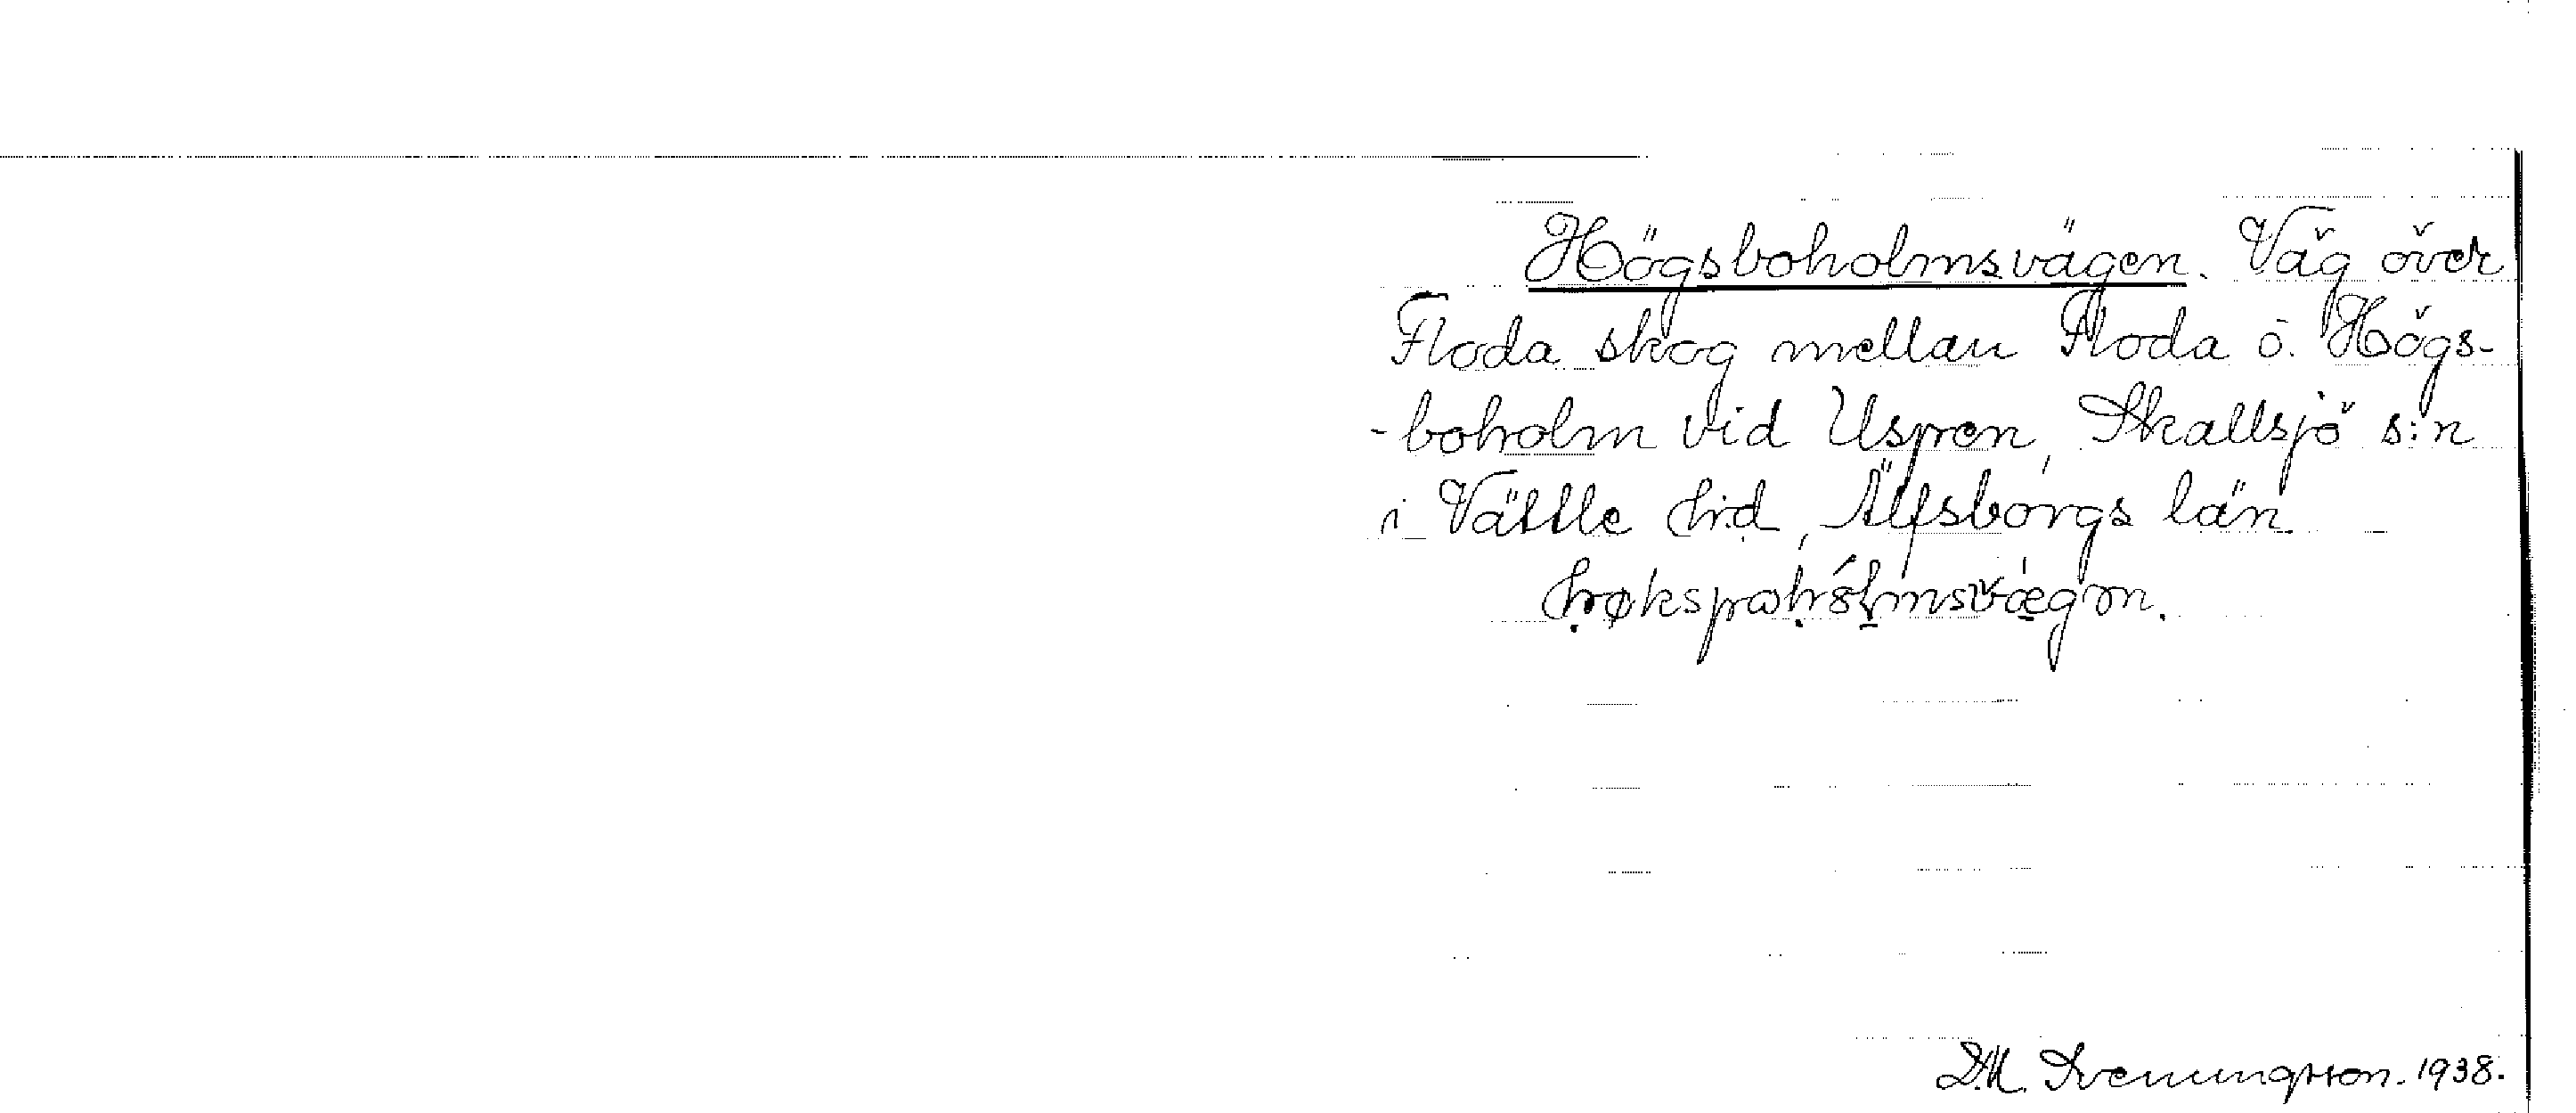 Högsboholmsvägen. Väg över
Floda skog mellan Floda o. Högs-
-boholm vid Uspen, Skallsjö s:n
i Vättle hd, Älfsborgs län.
D.M. Svenningsson. 1938.